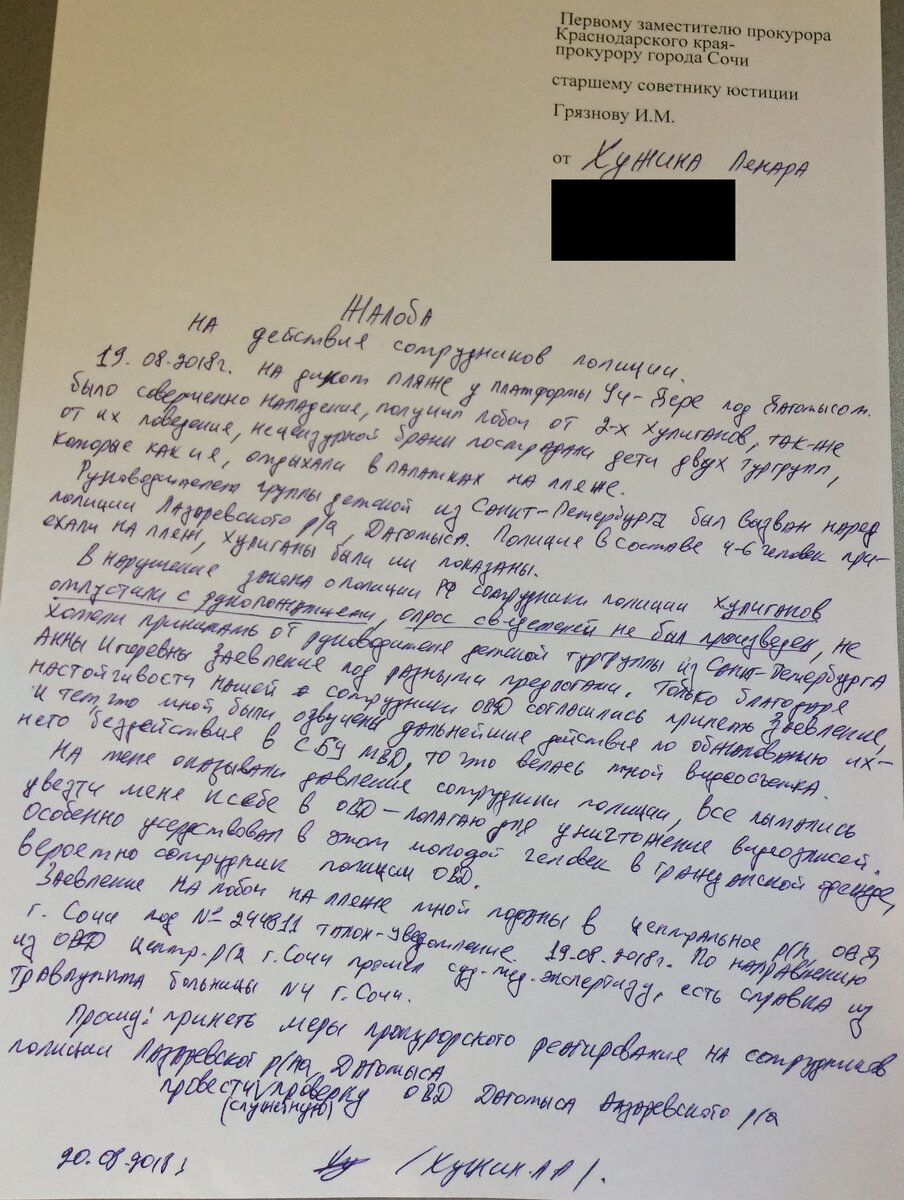 Первому заместителю прокурора
Краснодарского края-
прокурору города Сочи
старшему советнику юстиции
Грязнову И.М.
от Хужина Ленара
Жалоба
на действия сотрудников полиции.
19.08.2018г. на диком пляже у платформы Уч-Дере под Дагомысом.
было совершенно нападение, получил побои от 2-х хулиганов, так-же
от их поведения, нецензурной брани пострадали дети двух тургрупп,
которые как и я, отдыхали в палатках на пляже.
Руководителем группы детской из Санкт-Петербурга был вызван наряд
полиции Лазаревского р/на, Дагомыса. Полиция в составе 4-6 человек при-
ехали на пляж, хулиганы были им показаны.
В нарушение закона о полиции РФ сотрудники полиции хулиганов
отпустили с рукопожатиями, опрос свидетелей не был произведен, не
хотели принимать от руководителя детской тургруппы из Санкт-Петербурга
Анны Игоревны заявление под разными предлогами. Только благодаря
настойчивости нашей сотрудники ОВД согласились принять заявление,
и тем, что мной были озвучены дальнейшие действия по обжалованию их-
него бездействия в СБУ МВД, то что велась мной видеосъемка.
На меня оказывали давление сотрудники полиции, все пытались
увезти меня к себе в ОВД – полагаю для уничтожение видеозаписей.
Особенно усердствовал в этом молодой человек в гражданской одежде,
вероятно сотрудник полиции ОВД.
Заявление на побои на пляже мной поданы в центральное р/на ОВД
г. Сочи под № 244811 талон-уведомление. 19.08.2018г. По направлению
из ОВД центр. р/на г. Сочи прошел суд-мед. экспертизу, есть справка из
травмпункта больницы №4 г. Сочи.
Прошу: принять меры прокурорского реагирования на сотрудников
полиции Лазаревского р/на, Дагомыса
провести проверку ОВД Дагомыса Лазаревского р/на
(служебную)
20.08.2018г /Хужин Л.Р/.